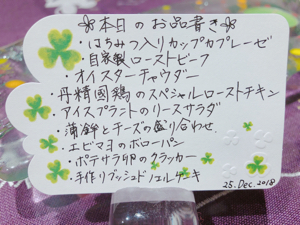 本日のお品書き
・はちみつ入りカップカプレーゼ
・自家製ローストビーフ
・オイスターチャウダー
・丹精國鶏のスペシャルローストチキン
・アイスプラントのリースサラダ
・蒲鉾とチーズの盛り合わせ
・エビマヨのボローパン
・ポテサラ卵のクラッカー
・手作りブッシュドノエルケーキ
25. Dec. 2018